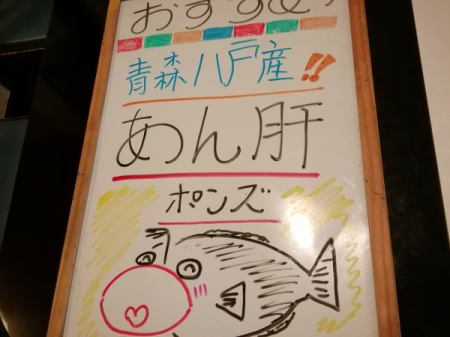 おすすめ
青森八戸産!!
あん肝
ポンズ